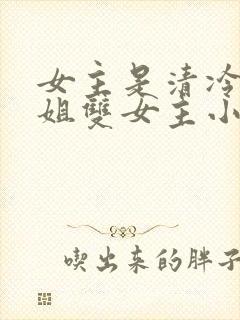 女主是清冷
姐雙女主小
喫出来的胖子